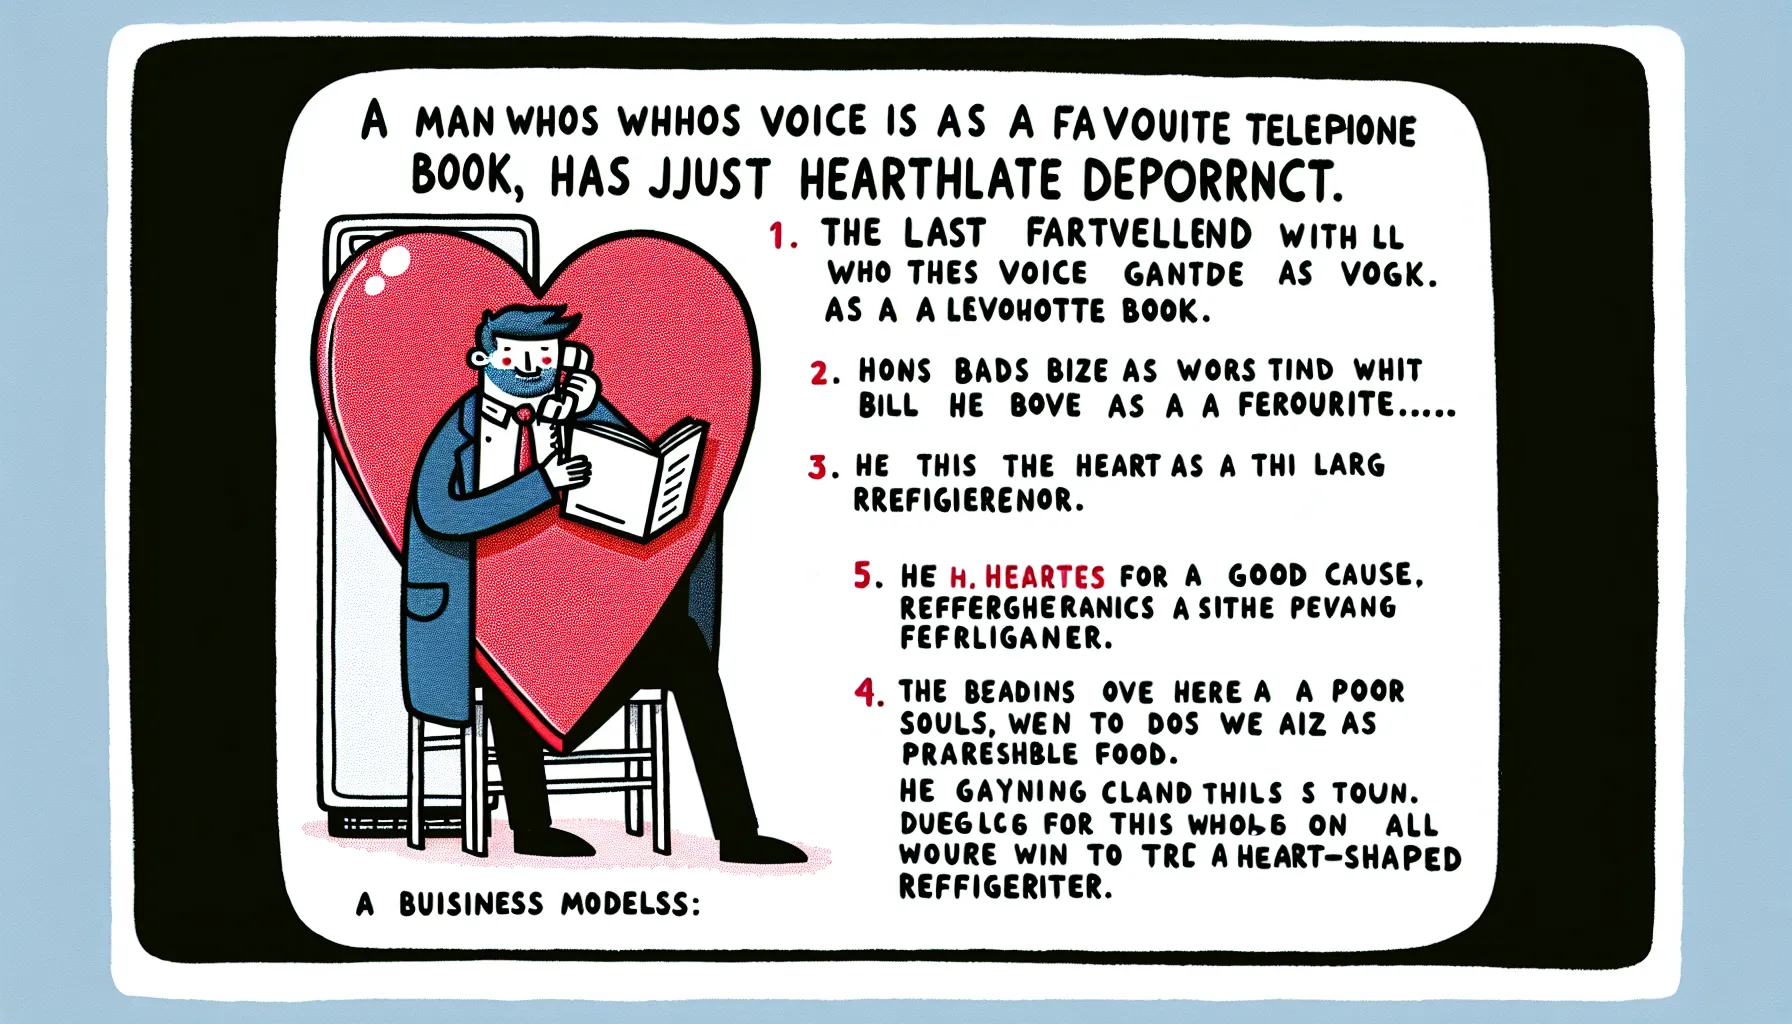 A MAN WHOS WHHOS VOICE IS AS A FAVOUITE TELEPIONE
BOOK, HAS JJUST HEARTHLATE DEPORRNCT.
1. THE LAST FARTVELLEND WITH LL
WHO THES VOICE GANTDE AS VOGK.
AS A A LEVOHOTTE BOOK.
2. HONS BADS BIZE AS WORS TIND WHIT
BILL HE BOVE AS A A FEROURITE.....
3. HE THIS THE HEART AS A THI LARG
RREFIGIERENOR.
5. HE H. HEARTES FOR A GOOD CAUSE,
REFFERGHERANICS A SITHE PEVANG
FEFRLIGANER.
4. THE BEADINS OVE HERE A A POOR
SOULS, WEN TO DOS WE AIZ AS
PRARESHBLE FOOD.
HE GAYNING CLAND THILS S TOUN.
DUEGLCG FOR THIS WHOLG ON ALL
WOURE WIN TO TRC A HEART-SHAPED
REFFIGERITER.
A BUISINESS MODELSS: